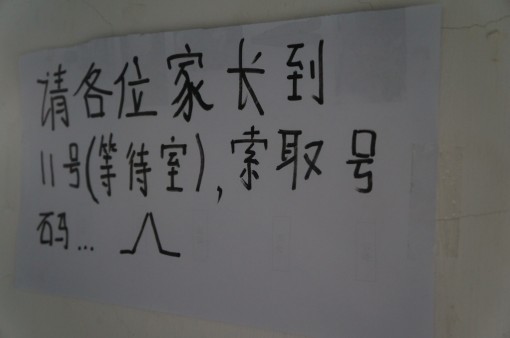 请各位家长到
11号(等待室),索取号
码...